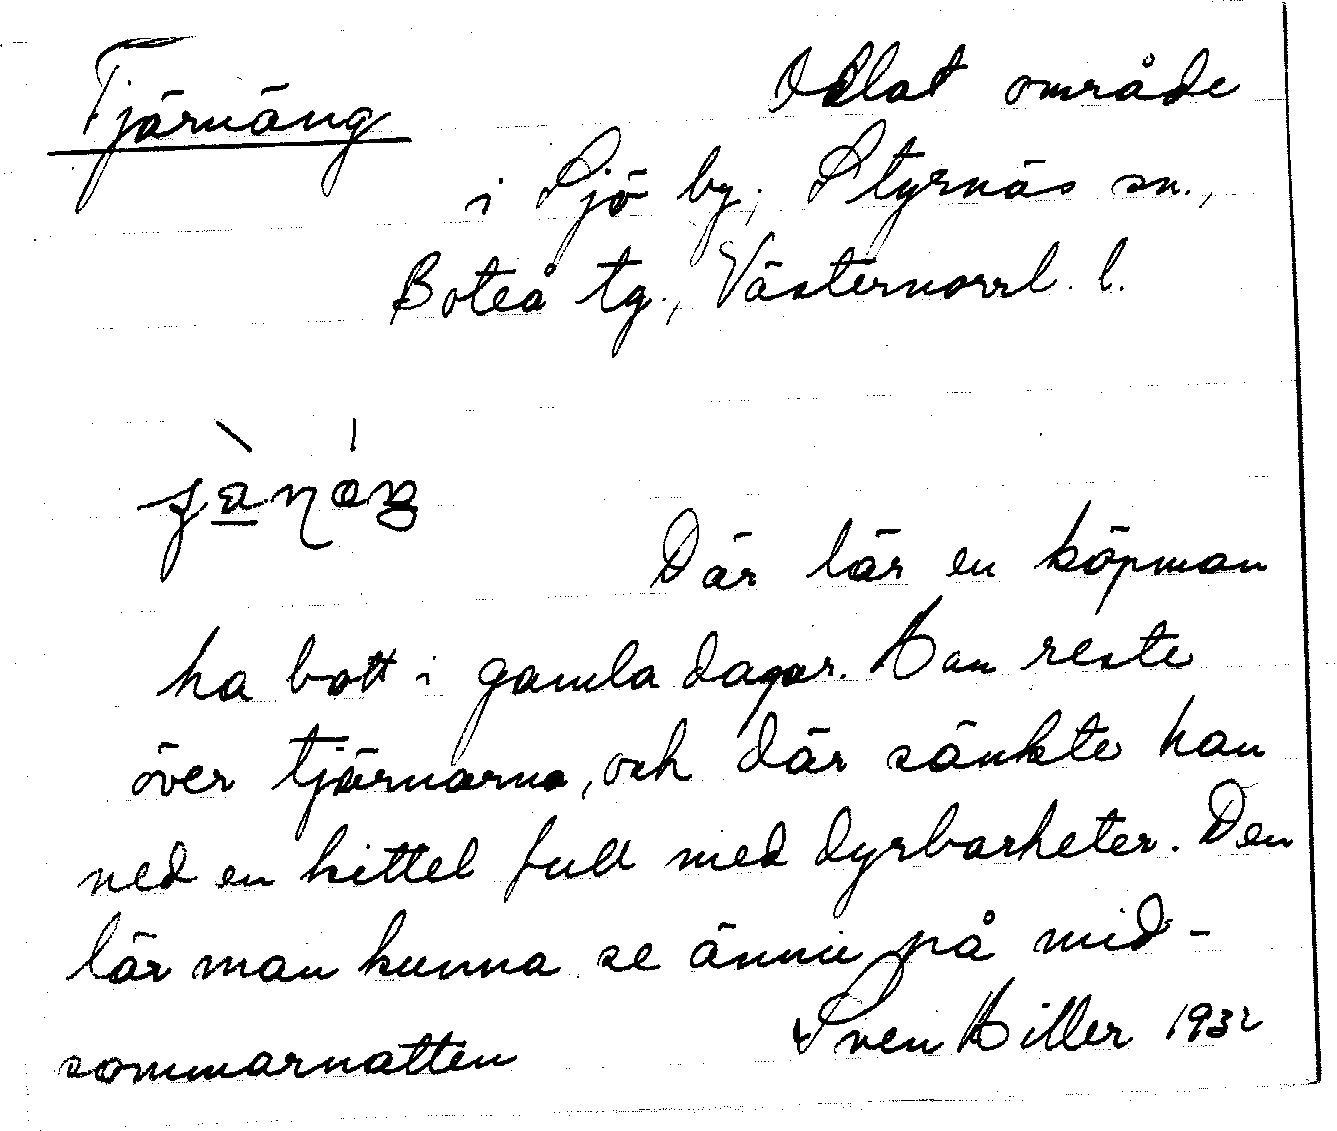 Tjärnäng
Odlat område
i Sjö by, Styrnäs sn.,
Boteå tg., Västernorrl. l.
Där lär en köpman
ha bott i gamla dagar. Han reste
över tjärnarna, och där sänkte han
ned en kittel full med dyrbarheter. Den
lär man kunna se ännu på mid-
sommarnatten
Sven Hiller 1932